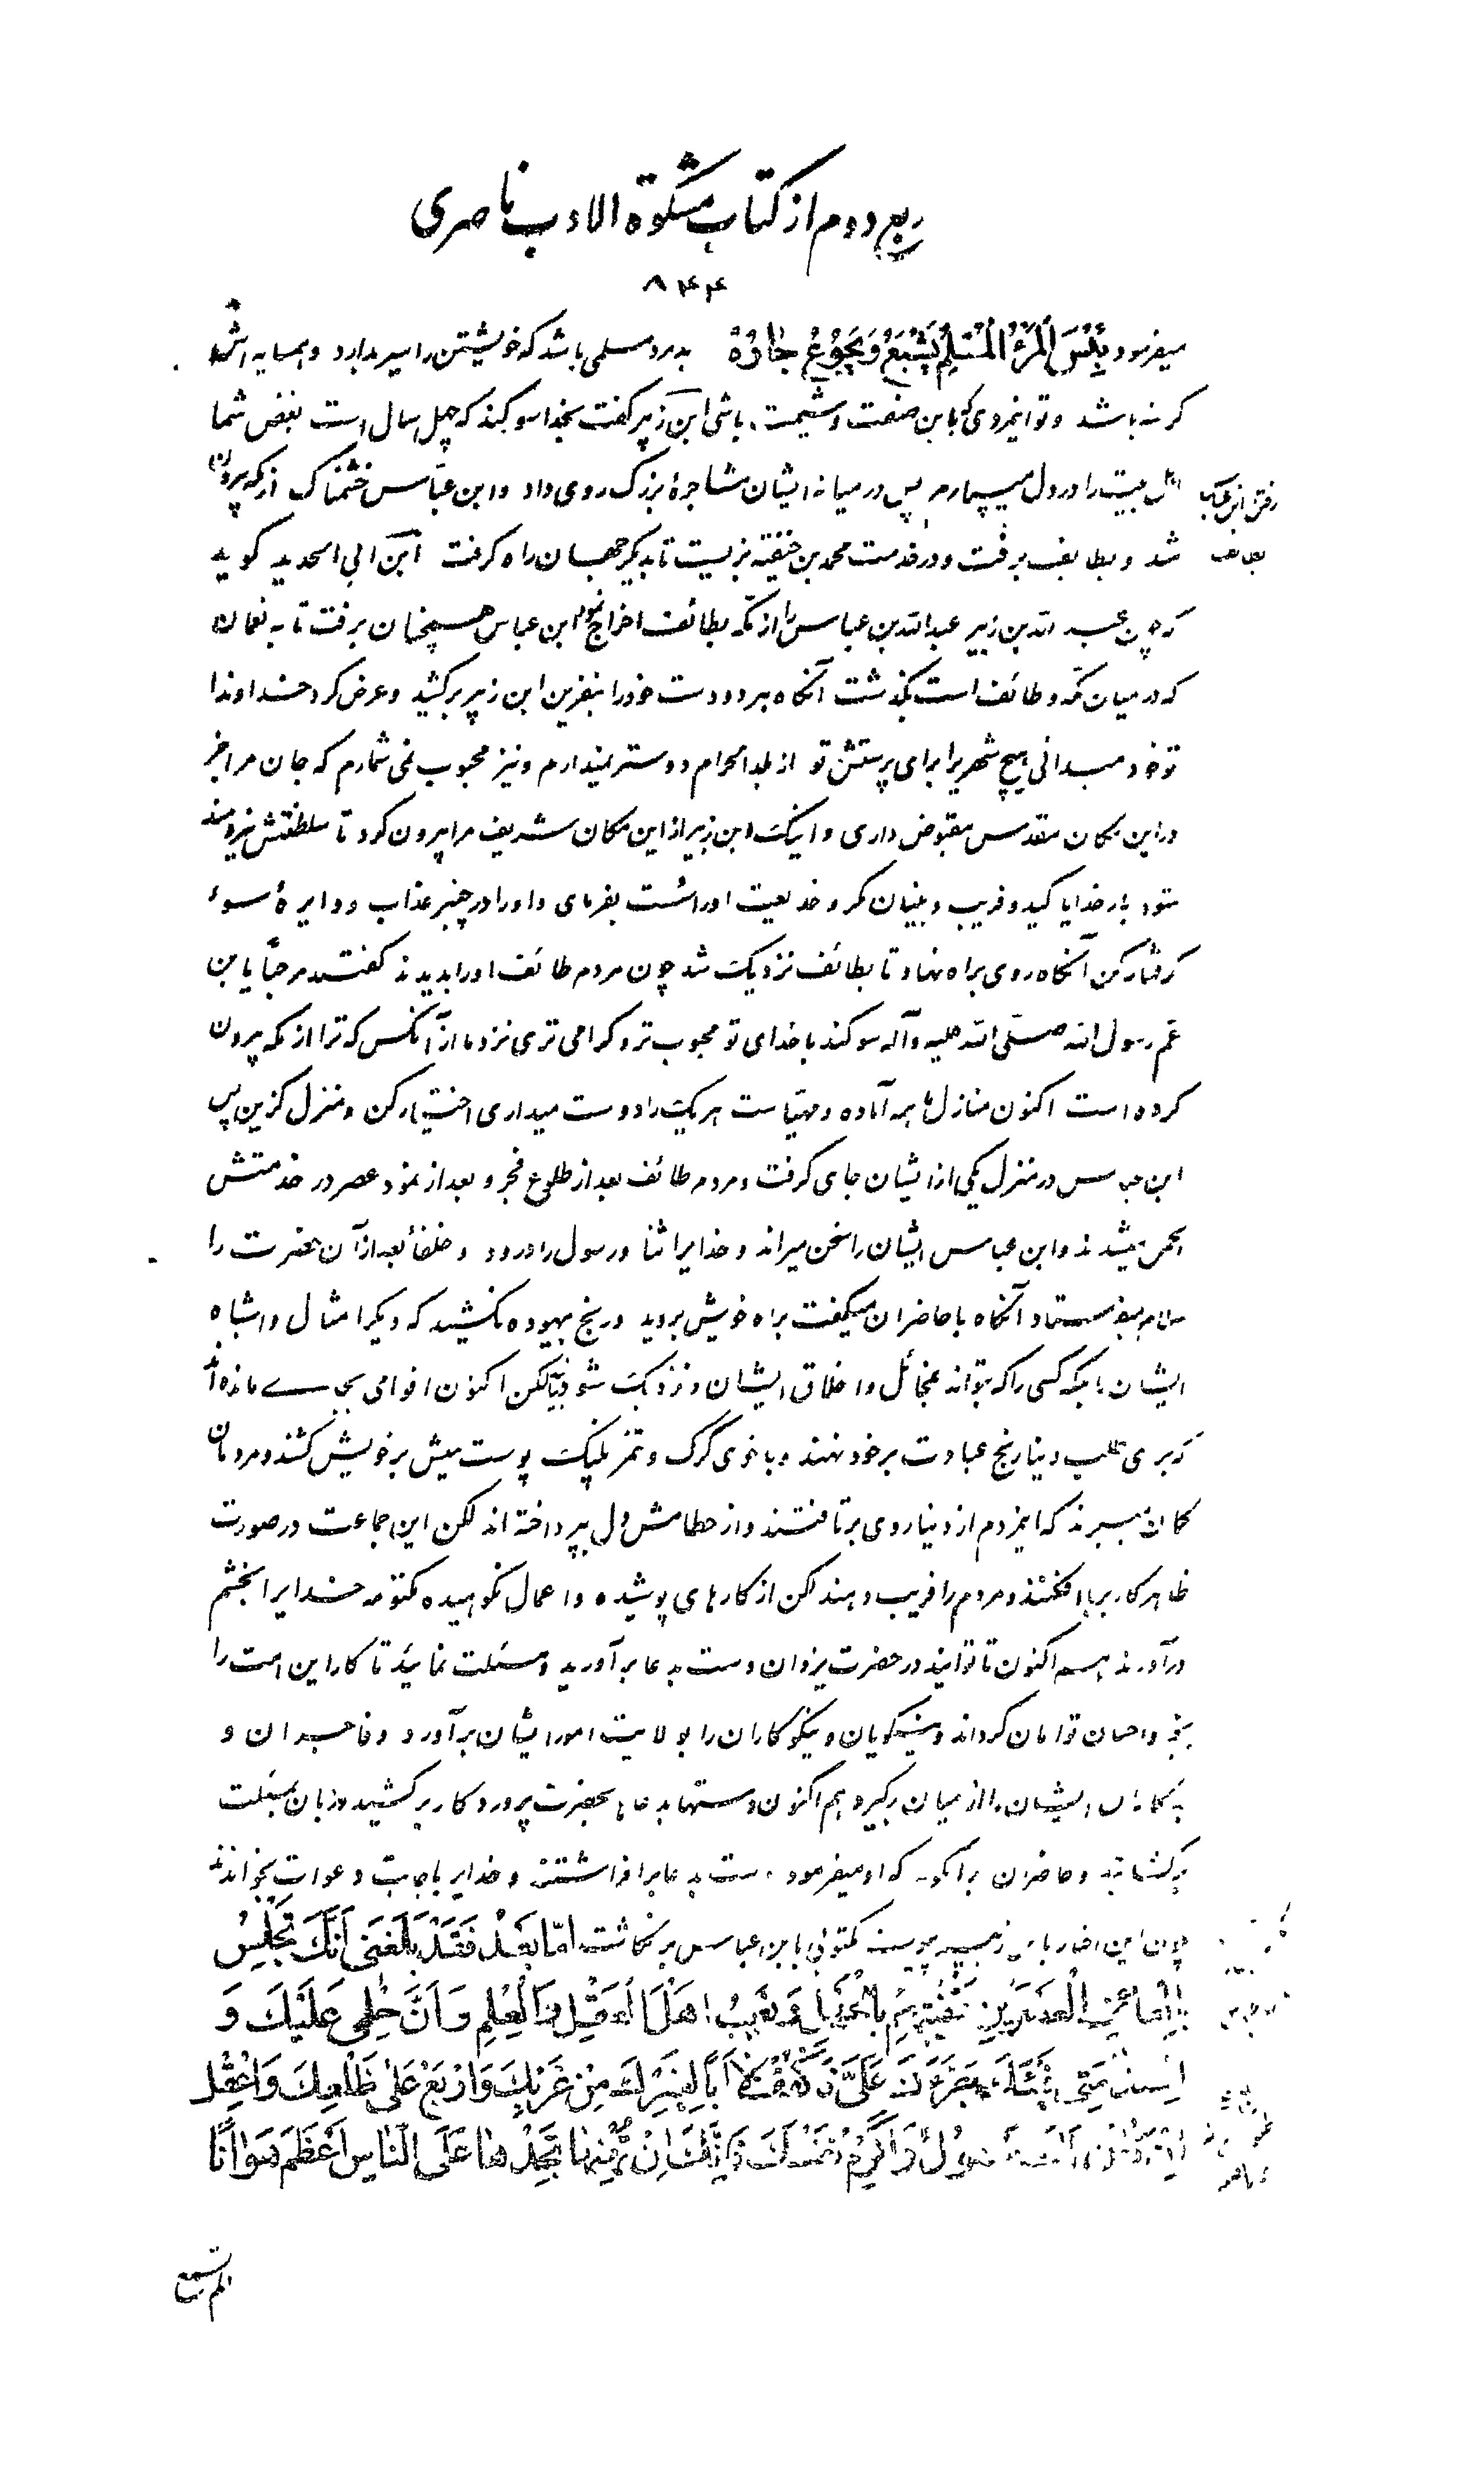 ربع دوم از کتاب مشکوة الادب ناصری
۸۴۴
میفرمود بِئْسَ الْمَرْءُ الْمُسْلِمُ یَشْبَعُ وَیَجُوعُ جارُهُ بد مرد مسلمی باشد که خویشتن را سیر بدارد و همسایه اش
گرسنه باشد و تو آنمردی که باین صفت و شیمت باشی ابن زبیر گفت بخدا سوگند که چهل سال است بغض شما
اهل بیت را در دل میسپارم پس در میانه ایشان مشاجرهٔ بزرگ روی داد و ابن عباس خشمناک از مکه بیرون
رفتن ابن عباس
بطائف
شد و بطایف برفت و در خدمت محمد بن حنفیه بزیست تا بدیگر جهان راه گرفت ابن ابی الحدید گوید
که چون عبد الله بن زبیر عبدالله بن عباس را از مکه بطائف اخراج نمود ابن عباس همچنان برفت تا به نعمان
که در میان مکه و طائف است بگذشت آنگاه هر دو دست خود را بنفرین ابن زبیر برکشید و عرض کرد خداوندا
تو خود میدانی هیچ شهریرا برای پرستش تو از بلد الحرام دوستر نمیدارم و نیز محبوب نمی شمارم که جان مرا جز
در این مکان مقدس مقبوض داری و اینک ابن زبیر از این مکان شریف مرا بیرون کرد تا سلطنتش نیرومند
شود بار خدایا کید و فریب و بنیان مکر و خدیعت او را سست بفرمای و او را در چنبر عذاب و دایرهٔ سوء
گرفتار کن آنگاه روی براه نهاد تا بطائف نزدیک شد چون مردم طائف او را بدیدند گفتند مرحبا یا بن
عم رسول الله صلی الله علیه و آله سوگند با خدای تو محبوب تر و گرامی تری نزد ما از آنکس که ترا از مکه بیرون
کرده است اکنون منازل ما همه آماده و مهیاست هر یک را دوست میداری اختیار کن و منزل گزین پس
ابن عباس در منزل یکی از ایشان جای گرفت و مردم طائف بعد از طلوع فجر و بعد از نماز عصر در خدمتش
انجمن میشدند و ابن عباس ایشان را سخن میراند و خدایرا ثنا و رسول را درود و خلفا بعد از آن حضرت را
سلام میفرستاد آنگاه با حاضران میگفت براه خویش بروید و رنج بیهوده مکشید که دیگر امثال و اشباه
ایشان بلکه کسی را که بتواند بخصائل و اخلاق ایشان نزدیک شود لکن اکنون اقوامی بجای مانده اند
که برای طلب دنیا رنج عبادت بر خود نهند و با خوی گرگ و تنمر پلنگ پوست میش بر خویش کشند و مردمان
گمان میبرند که اینمردم از دنیا روی برتافتند و از حطامش دل بپرداخته اند لکن این جماعت در صورت
ظاهر کار بریا افکنند و مردم را فریب دهند لکن از کارهای پوشیده و اعمال نکوهیده مکتومه خدایرا بخشم
درآورند هم اکنون تا توانید در حضرت یزدان دست بدعا برآورید و مسئلت نمائید تا کار این امت را
بخیر و احسان توامان گرداند و نیکویان و نیکوکاران را بولایت امور ایشان برآورد و فاجران و
بدکاران ایشان را از میان برگیرد هم اکنون دستها بدعا بحضرت پروردگار برکشید و زبان بمسئلت
برگشائید و حاضران برآنگونه که او میفرمود دست بدعا برافراشتند و خدایرا باجابت دعوات بخواندند
چون این اخبار با بن زبیر پیوست مکتوبی بابن عباس برنگاشت اَمّا بَعْدُ فَقَدْ بَلَغَنی اَنَّکَ تَجْلِسُ
بِالطّائِفِ الْعَصْرَیْنِ تُفْتیهِمْ بِالْجَهْلِ وَ تَعیبُ اَهْلَ الْعَقْلِ وَالْعِلْمِ وَ اَنَّ حِلْمی عَلَیْکَ وَ
اسْتِدامَتی فَیْئَکَ جَرَّءَکَ عَلَیَّ فَاکْفُفْ لا اَباً لِغَیْرِکَ مِنْ غَرْبِکَ وَارْبَعْ عَلی ظَلْعِکَ وَاعْقِلْ
اِنْ کانَ لَکَ مَعْقُولٌ وَاَکْرِمْ نَفْسَکَ فَاِنَّکَ اِنْ تُهِنْها تَجِدْها عَلَی النّاسِ اَعْظَمَ هَواناً
الم تسمع